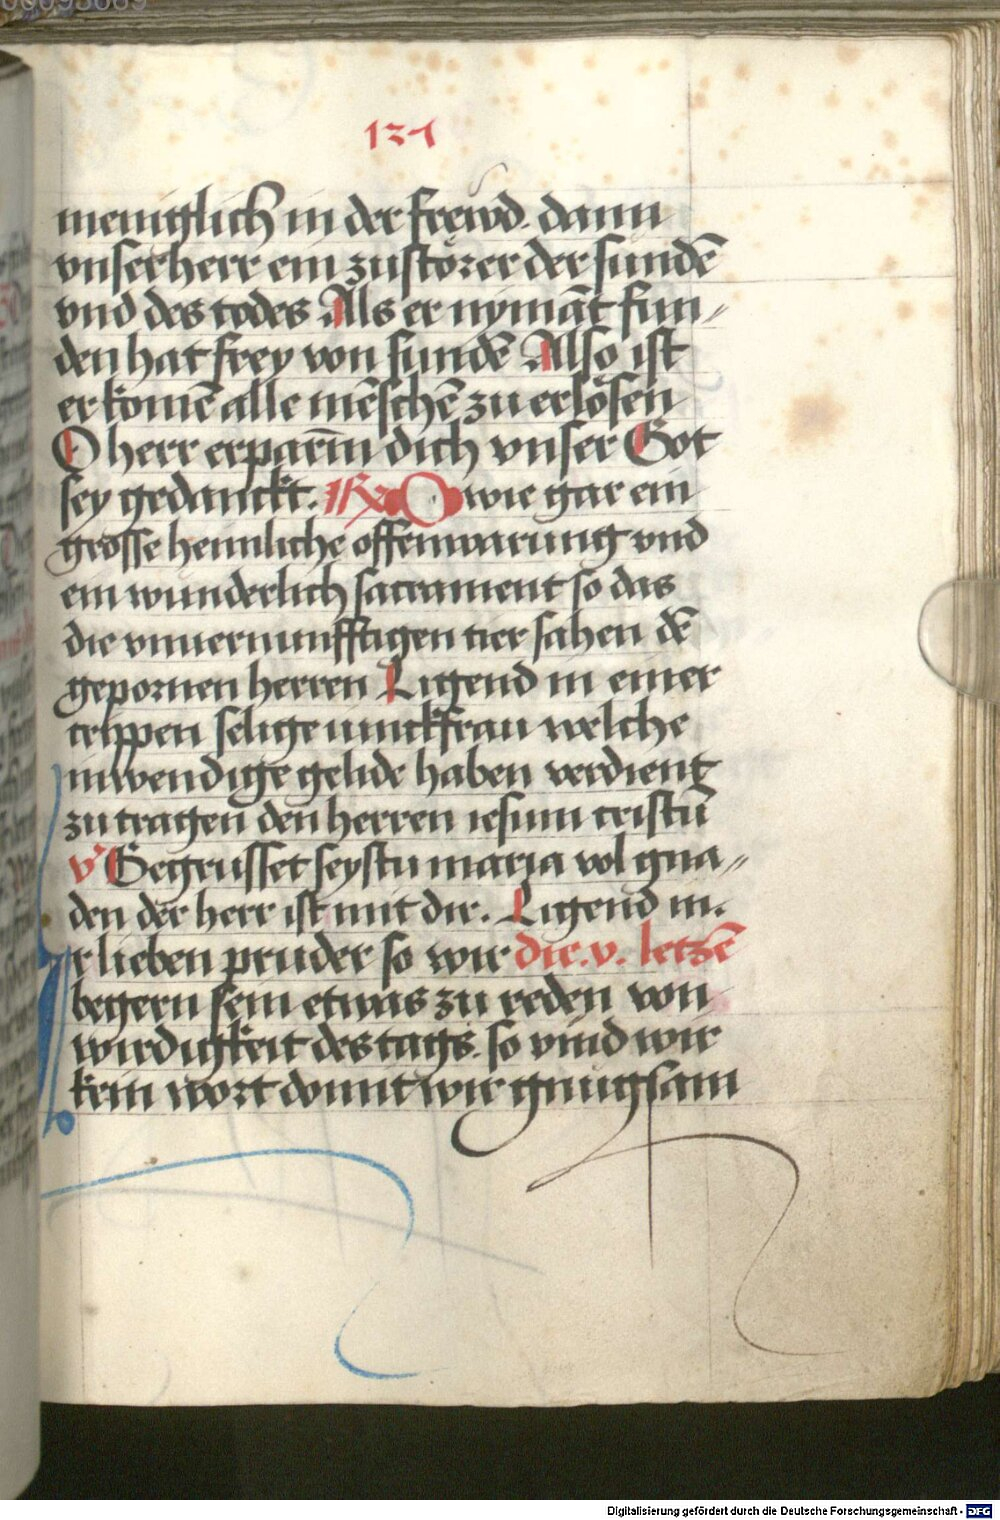 137
meniglich in der frewd. dann
vnser herr ein zustörer der sündē
vnd des todes Als er nymāt fun⸗
den hat frey von sundē Also ist
er komē alle mēschē zu erlösen
O herr erparm̄ dich vnser Got
sey gedanckt. R O wie gar ein
grosse heimliche offenwarung vnd
ein wunderlich sacrament so das
die vnuernunfftigen tier sahen dē
gepornen herren Ligend in einer
crippen selige iunckfrau welche
inwendige gelide haben verdient
zu tragen den herren iesum cristū
v Gegrusset seystu maria vol gna⸗
den der herr ist mit dir. Ligend in.
Ir lieben pruder so wir die .v. letzē
begern sein etwas zu reden von
wirdigkeit des tags. so vind wir
kein wort domit wir gnugsam
Digitalisierung gefördert durch die Deutsche Forschungsgemeinschaft - DFG